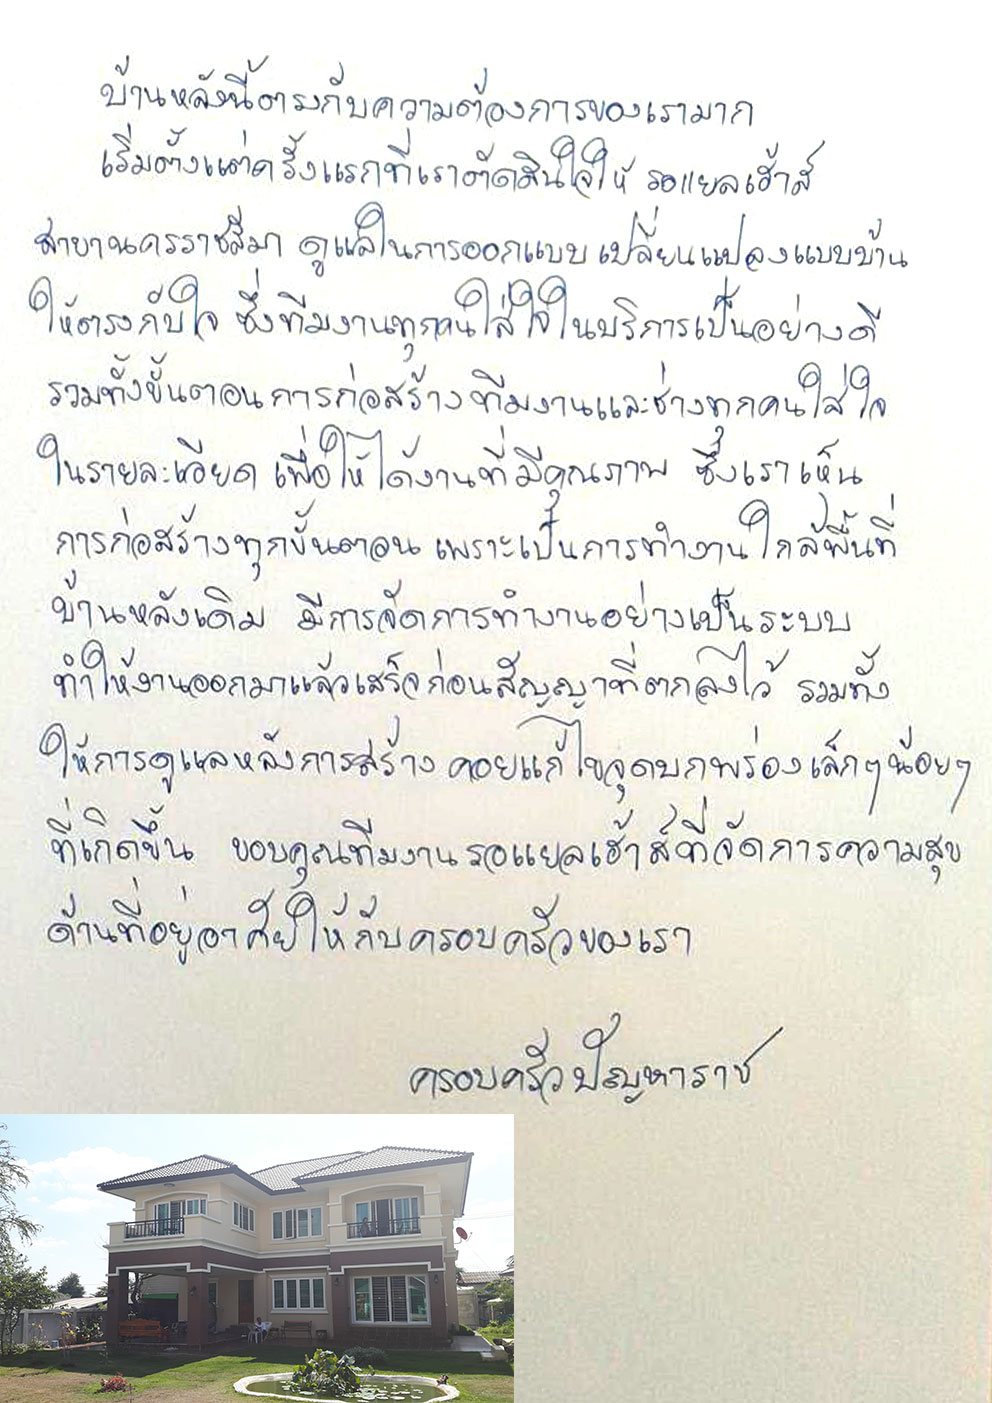 บ้านหลังนี้ตรงกับความต้องการของเรามาก
เริ่มตั้งแต่ครั้งแรกที่เราตัดสินใจให้ รอแยลเฮ้าส์
สาขานครราชสีมา ดูแลในการออกแบบ เปลี่ยนแปลงแบบบ้าน
ให้ตรงกับใจ ซึ่งทีมงานทุกคนใส่ใจในบริการเป็นอย่างดี
รวมทั้งขั้นตอนการก่อสร้าง ทีมงานและช่างทุกคนใส่ใจ
ในรายละเอียด เพื่อให้ได้งานที่มีคุณภาพ ซึ่งเราเห็น
การก่อสร้างทุกขั้นตอน เพราะเป็นการทำงานใกล้พื้นที่
บ้านหลังเดิม มีการจัดการทำงานอย่างเป็นระบบ
ทำให้งานออกมาแล้วเสร็จก่อนสัญญาที่ตกลงไว้ รวมทั้ง
ให้การดูแลหลังการสร้าง คอยแก้ไขจุดบกพร่องเล็กๆน้อยๆ
ที่เกิดขึ้น ขอบคุณทีมงานรอแยลเฮ้าส์ที่จัดการความสุข
ด้านที่อยู่อาศัยให้กับครอบครัวของเรา
ครอบครัวปัญหาราช